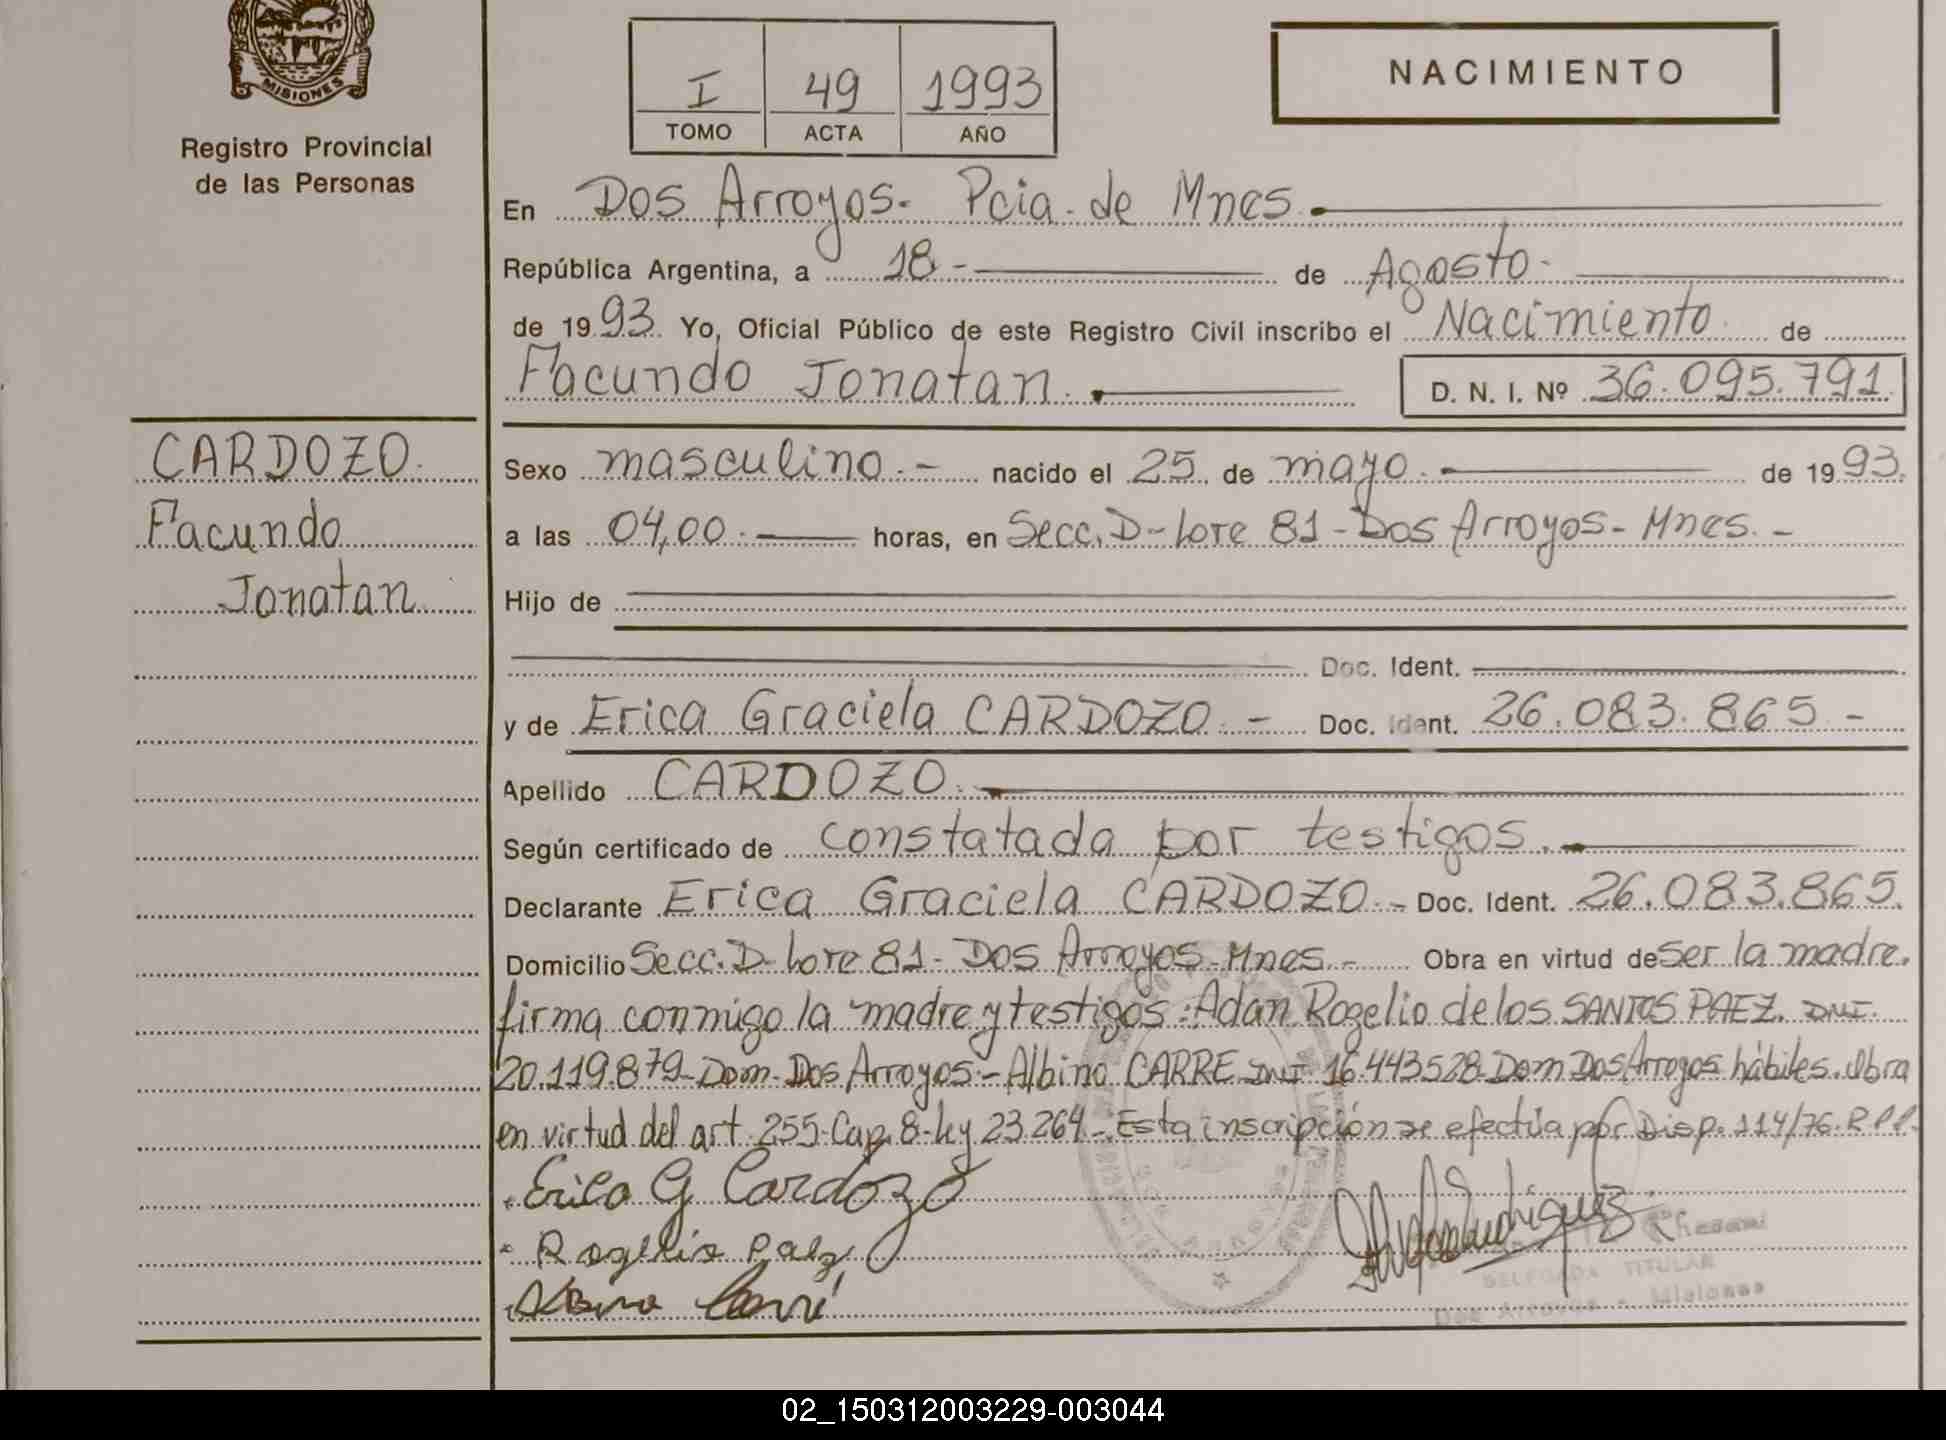 MISIONES
Registro Provincial
de las Personas
I 49 1993
TOMO ACTA AÑO
NACIMIENTO
En Dos Arroyos. Pcia. de Mnes.
República Argentina, a 18 - de Agosto.
de 1993. Yo, Oficial Público de este Registro Civil inscribo el Nacimiento de
Facundo Jonatan. D. N. I. Nº 36.095.791.
CARDOZO.
Facundo
Jonatan.
Sexo masculino.- nacido el 25 de mayo. de 1993.
a las 04,00. horas, en Secc. D-Lote 81-Dos Arroyos-Mnes.-
Hijo de
Doc. Ident.
y de Erica Graciela CARDOZO.- Doc. Ident. 26.083.865-
Apellido CARDOZO.
Según certificado de constatada por testigos.
Declarante Erica Graciela CARDOZO.- Doc. Ident. 26.083.865.
Domicilio Secc. D-Lote 81-Dos Arroyos-Mnes.- Obra en virtud de ser la madre.
firma conmigo la madre y testigos: Adan Rogelio de los SANTOS PAEZ. DNI.
20.119.879-Dom. Dos Arroyos.-Albino CARRE DNI 16.443528-Dom Dos Arroyos hábiles. Obra
en virtud del art. 255-Cap. 8-Ley 23.264.-Esta inscripción se efectúa por Disp. 114/76. R.P.P.
Erica G Cardozo
Rogelio Paez
Albino Carré
DELEGADA TITULAR
Dos Arroyos - Misiones
02_150312003229-003044